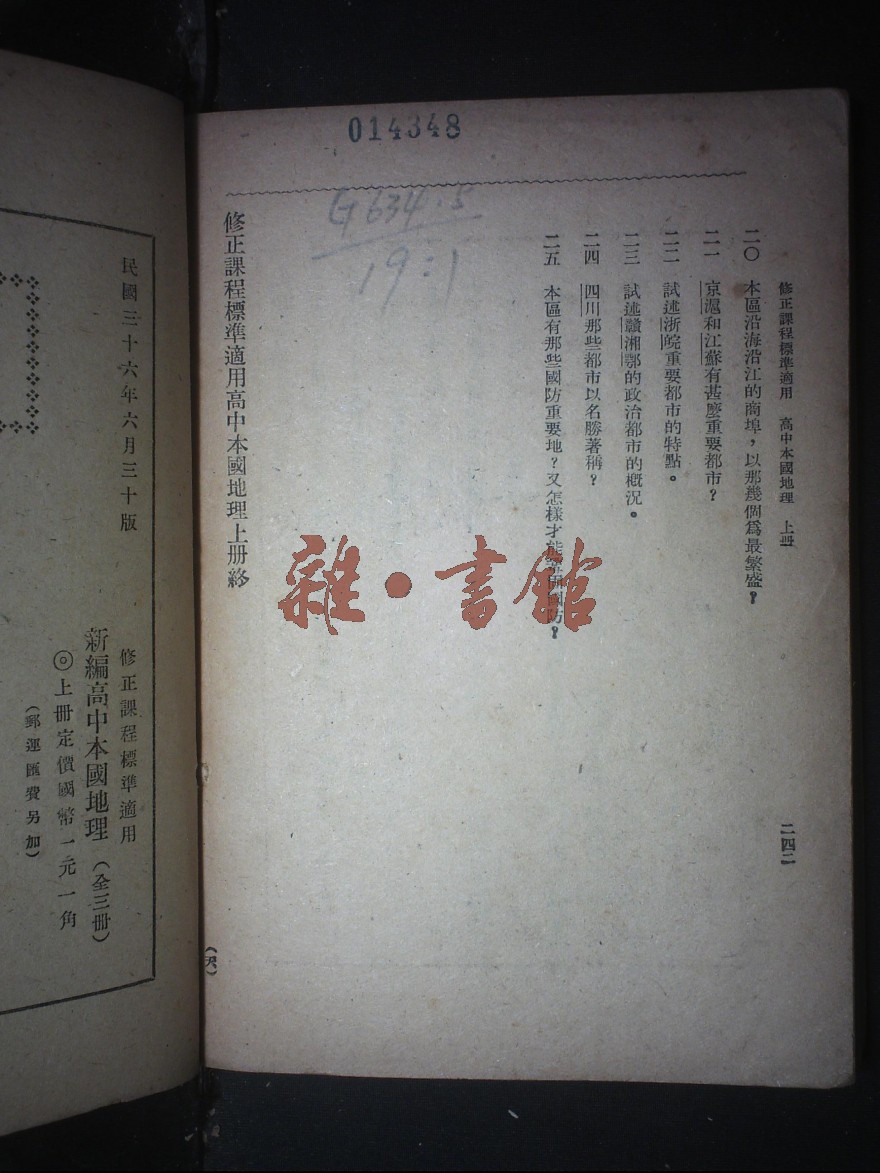 014348
G634.5
19:1
修正課程標準適用 高中本國地理 上冊
二四二
二〇 本區沿海沿江的商埠，以那幾個爲最繁盛？
二一 京滬和江蘇有甚麼重要都市？
二二 試述浙皖重要都市的特點。
二三 試述贛湘鄂的政治都市的概況。
二四 四川那些都市以名勝著稱？
二五 本區有那些國防重要地？又怎樣才能鞏國防？
修正課程標準適用高中本國地理上册終
雜·書館
民國三十六年六月三十版
修正課程標準適用
新編高中本國地理（全三冊）
◎上冊定價國幣一元一角
（郵運匯費另加）